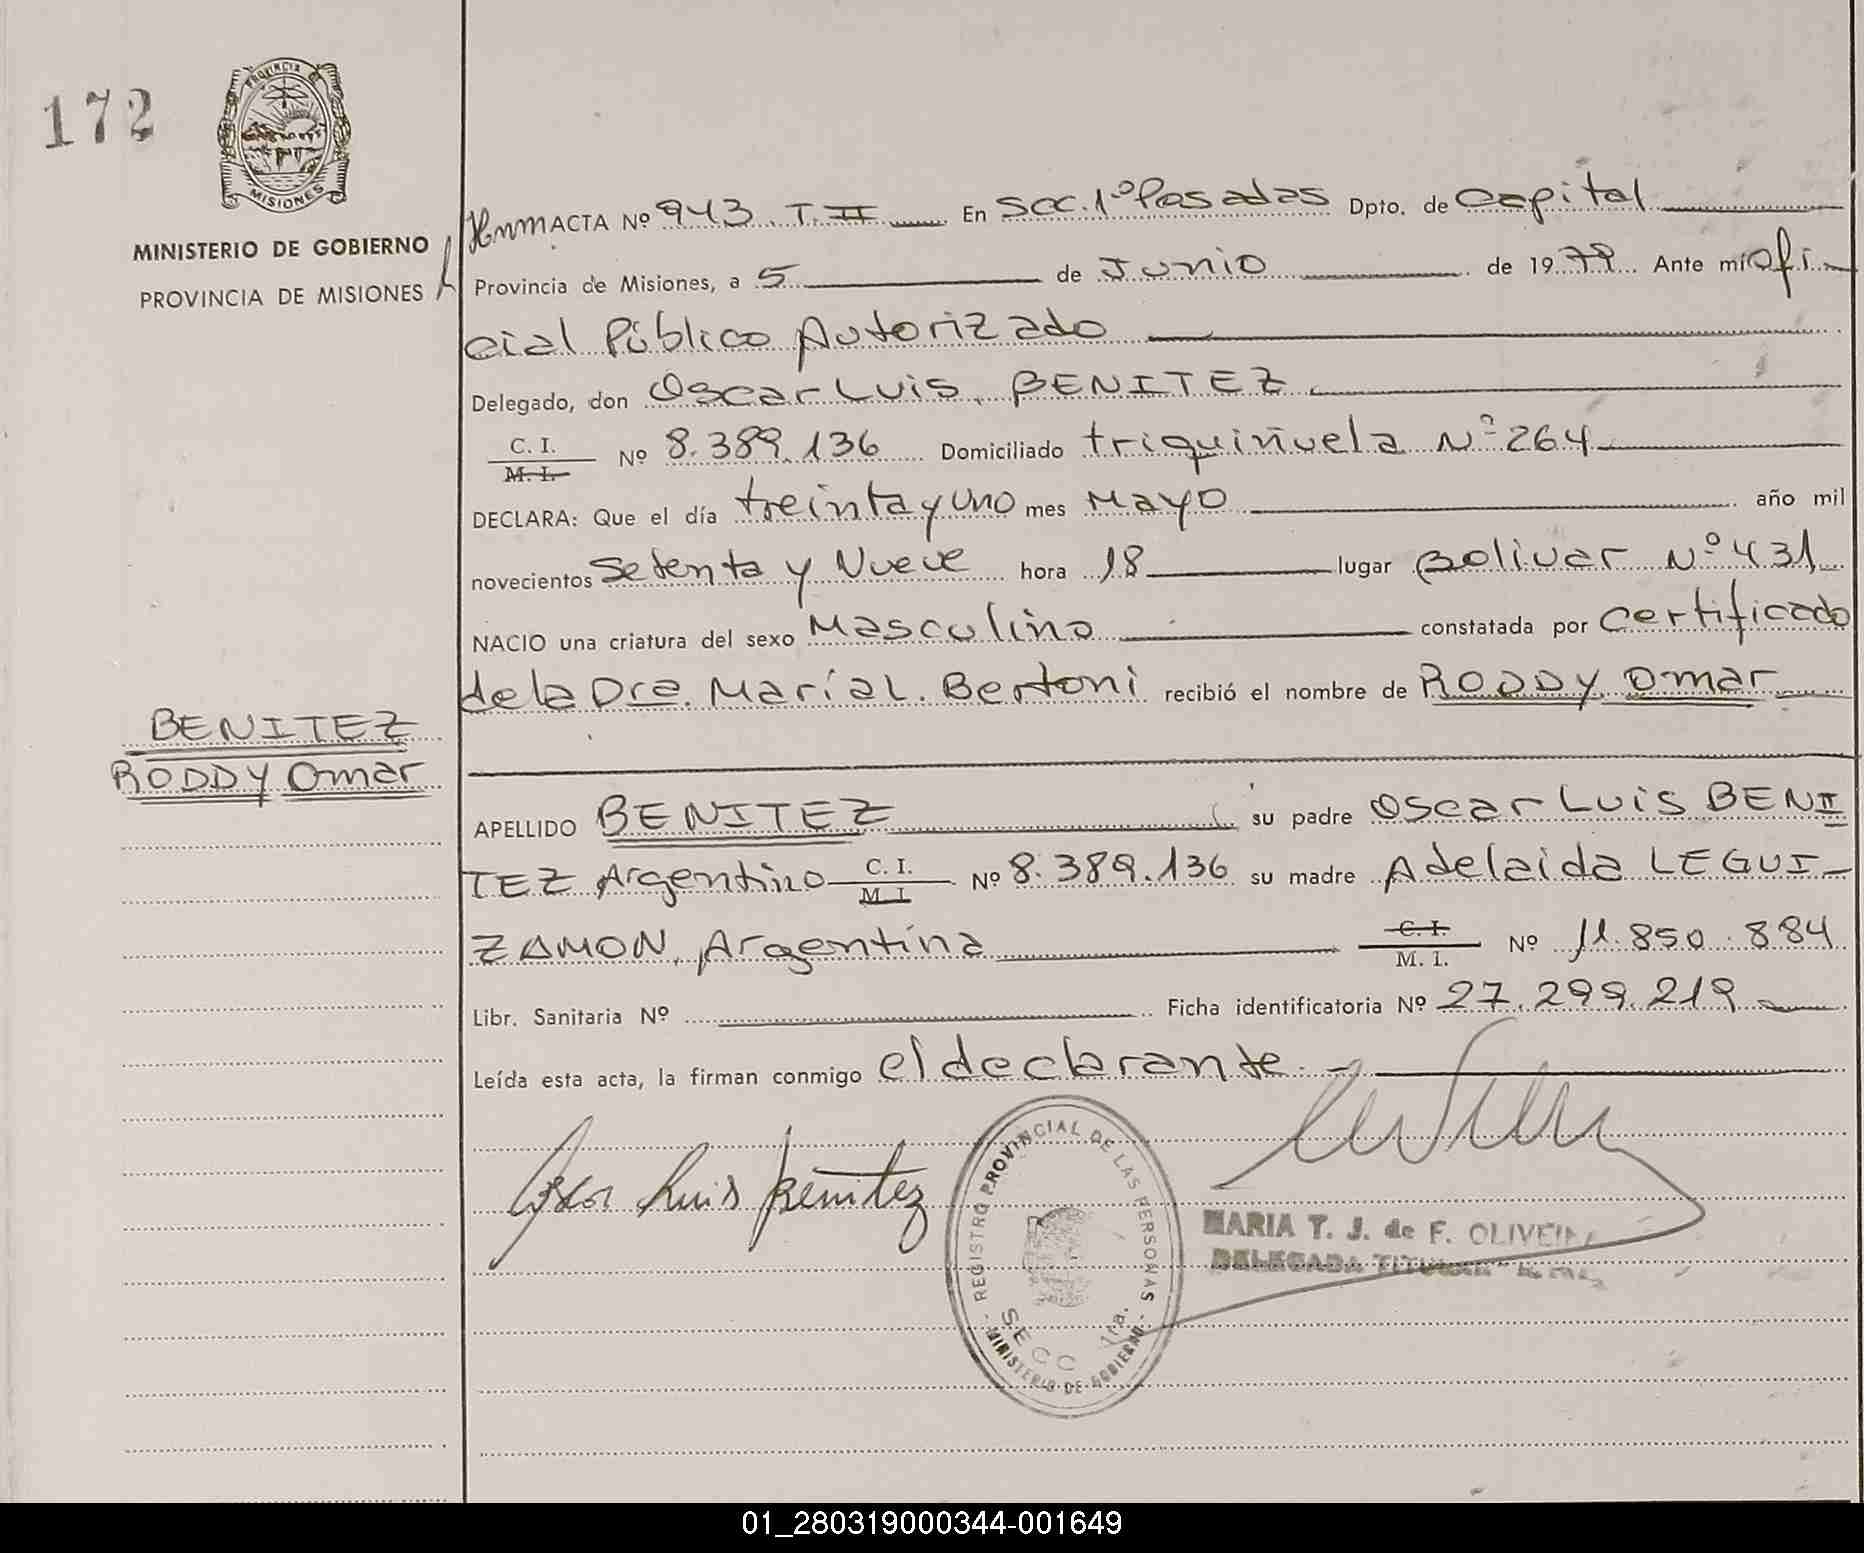 172
PROVINCIA DE
MISIONES
MINISTERIO DE GOBIERNO
PROVINCIA DE MISIONES
ACTA Nº 943 T. II En Scc. 1º Posadas Dpto. de Capital
Provincia de Misiones, a 5 de Junio de 1979 Ante mí Ofi
cial Público Autorizado
Delegado, don Oscar Luis BENITEZ
C. I.
M. I.
Nº 8.389.136 Domiciliado triquiñuela Nº 264
DECLARA: Que el día treinta y uno mes Mayo año mil
novecientos Setenta y Nueve hora 18 lugar Bolivar Nº 431
NACIO una criatura del sexo Masculino constatada por Certificado
de la Dra. María L. Bertoni recibió el nombre de RODDY Omar
BENITEZ
RODDY Omar
APELLIDO BENITEZ su padre Oscar Luis BENI
TEZ Argentino C. I. M. I. Nº 8.389.136 su madre Adelaida LEGUI-
ZAMON, Argentina C. I. M. I. Nº 11.850.884
Libr. Sanitaria Nº Ficha identificatoria Nº 27.299.219
Leída esta acta, la firman conmigo el declarante.-
Oscar Luis Benitez
REGISTRO PROVINCIAL DE LAS PERSONAS
SECC 1ra.
MINISTERIO DE GOBIERNO
MARIA T. J. de F. OLIVEIRA
DELEGADA TITULAR
01_280319000344-001649